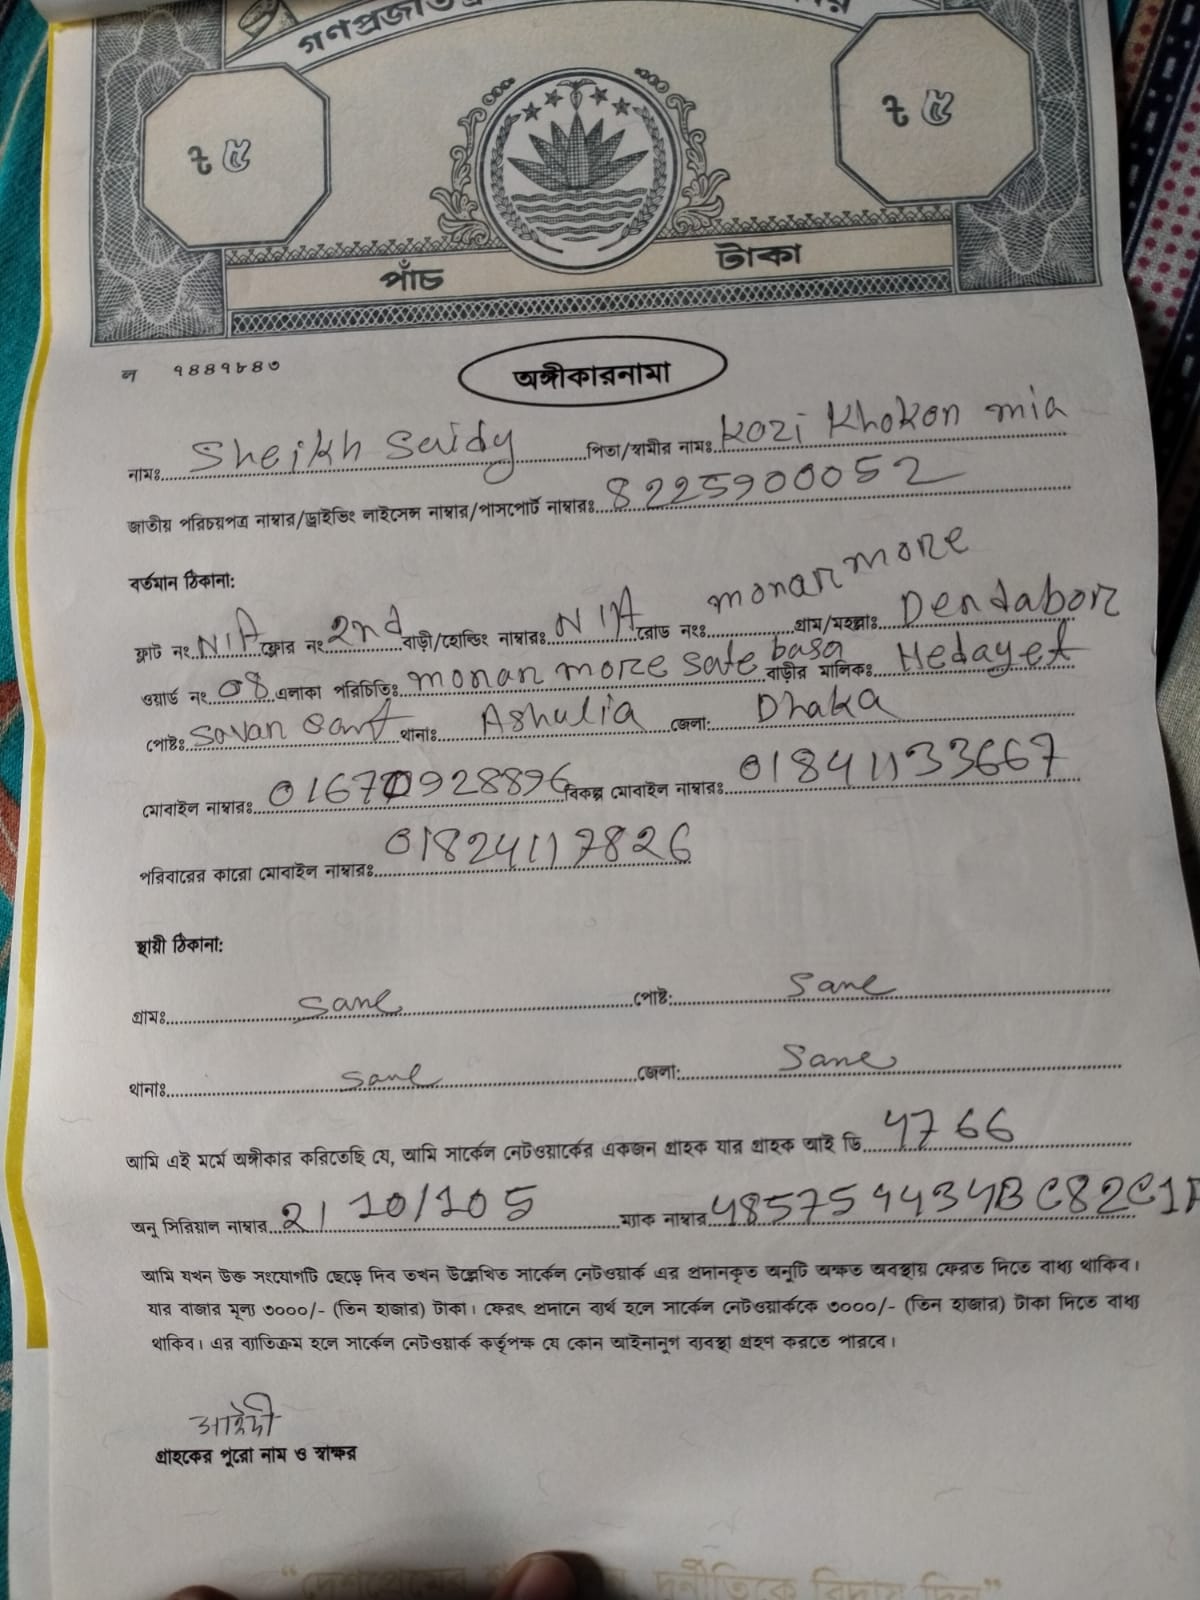 ৳ ৫
৳ ৫
পাঁচ টাকা
ল ৭৪৪৭৮৪৩
অঙ্গীকারনামা
নামঃ Sheikh Saidy পিতা/স্বামীর নামঃ Kozi Khokon mia
জাতীয় পরিচয়পত্র নাম্বার/ড্রাইভিং লাইসেন্স নাম্বার/পাসপোর্ট নাম্বারঃ 8225900052
বর্তমান ঠিকানা:
ফ্লাট নং N/A ফ্লোর নং 2nd বাড়ী/হোল্ডিং নাম্বারঃ N/A রোড নংঃ monar more গ্রাম/মহল্লাঃ Dendabor
ওয়ার্ড নং 08 এলাকা পরিচিতিঃ monar more sate basa বাড়ীর মালিকঃ Hedayet
পোষ্টঃ Savar cant থানাঃ Ashulia জেলা: Dhaka
মোবাইল নাম্বারঃ 01670928896 বিকল্প মোবাইল নাম্বারঃ 01841133667
পরিবারের কারো মোবাইল নাম্বারঃ 01824117826
স্থায়ী ঠিকানা:
গ্রামঃ same পোষ্ট: same
থানাঃ same জেলা: same
আমি এই মর্মে অঙ্গীকার করিতেছি যে, আমি সার্কেল নেটওয়ার্কের একজন গ্রাহক যার গ্রাহক আই ডি 4766
অনু সিরিয়াল নাম্বার 2110/105 ম্যাক নাম্বার 485754434BC82C1
আমি যখন উক্ত সংযোগটি ছেড়ে দিব তখন উল্লেখিত সার্কেল নেটওয়ার্ক এর প্রদানকৃত অনুটি অক্ষত অবস্থায় ফেরত দিতে বাধ্য থাকিব।
যার বাজার মূল্য ৩০০০/- (তিন হাজার) টাকা। ফেরৎ প্রদানে ব্যর্থ হলে সার্কেল নেটওয়ার্ককে ৩০০০/- (তিন হাজার) টাকা দিতে বাধ্য
থাকিব। এর ব্যতিক্রম হলে সার্কেল নেটওয়ার্ক কর্তৃপক্ষ যে কোন আইনানুগ ব্যবস্থা গ্রহণ করতে পারবে।
গ্রাহকের পুরো নাম ও স্বাক্ষর
দুর্নীতিকে বিদায় দিন"